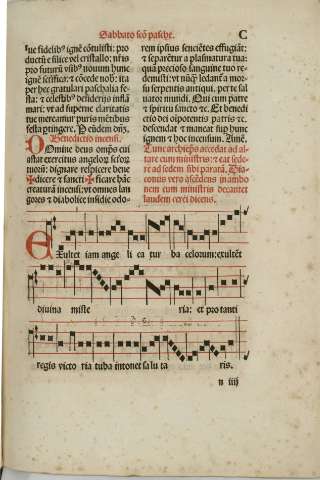 Sabbato scō pasche.
C
sue fidelibꝰ ignē cōtulisti: pro
ductū e silice vel cristallo: nr̄is
pro futurū vsibꝰ nouum hunc
ignē scīfica: ⁊ cōcede nob: ita
per hec gratulari paschalia fe-
sta: ⁊ celestibꝰ desiderijs inflā
mari: vt ad superne claritatis
tue mercamur puris mētibus
festa ptingere. P eūdem dn̄z.
Benedictio incensi.
Domine deus omp̄s cui
astat exercitus angelorū
dignare respicere bene
✠dicere ⁊ sancti✠ficare hāc
creaturā incensi: vt omnes lan
gores ⁊ diabolice insidie odo-
rem ipsius sencietes effugiāt:
⁊ separētur a plasmatura tua:
quā precioso sanguine tuo re-
demisti: vt nūqꝫ ledant̄ a mo
su serpentis antiqui. per te sal
uator mundi. Qui cum patre
⁊ spiritu sancto. ⁊c. Et benedi
ctio dei oīpotentis patris ⁊c.
descendat ⁊ maneat sup hunc
ignem ⁊ hoc incensum. Amē.
Tunc archiep̄s accedat ad al-
tare cum ministris: ⁊ eat sede-
re ad sedem sibi paratā. Dia-
conus vero ascēdens in ambo
nem cum ministris decantet
laudem cerei dicens.
Exultet iam ange li ca tur ba celorum: exultēt
diuina miste ria: et pro tanti
regis victo ria tuba intonet sa lu ta ris.
n iiij